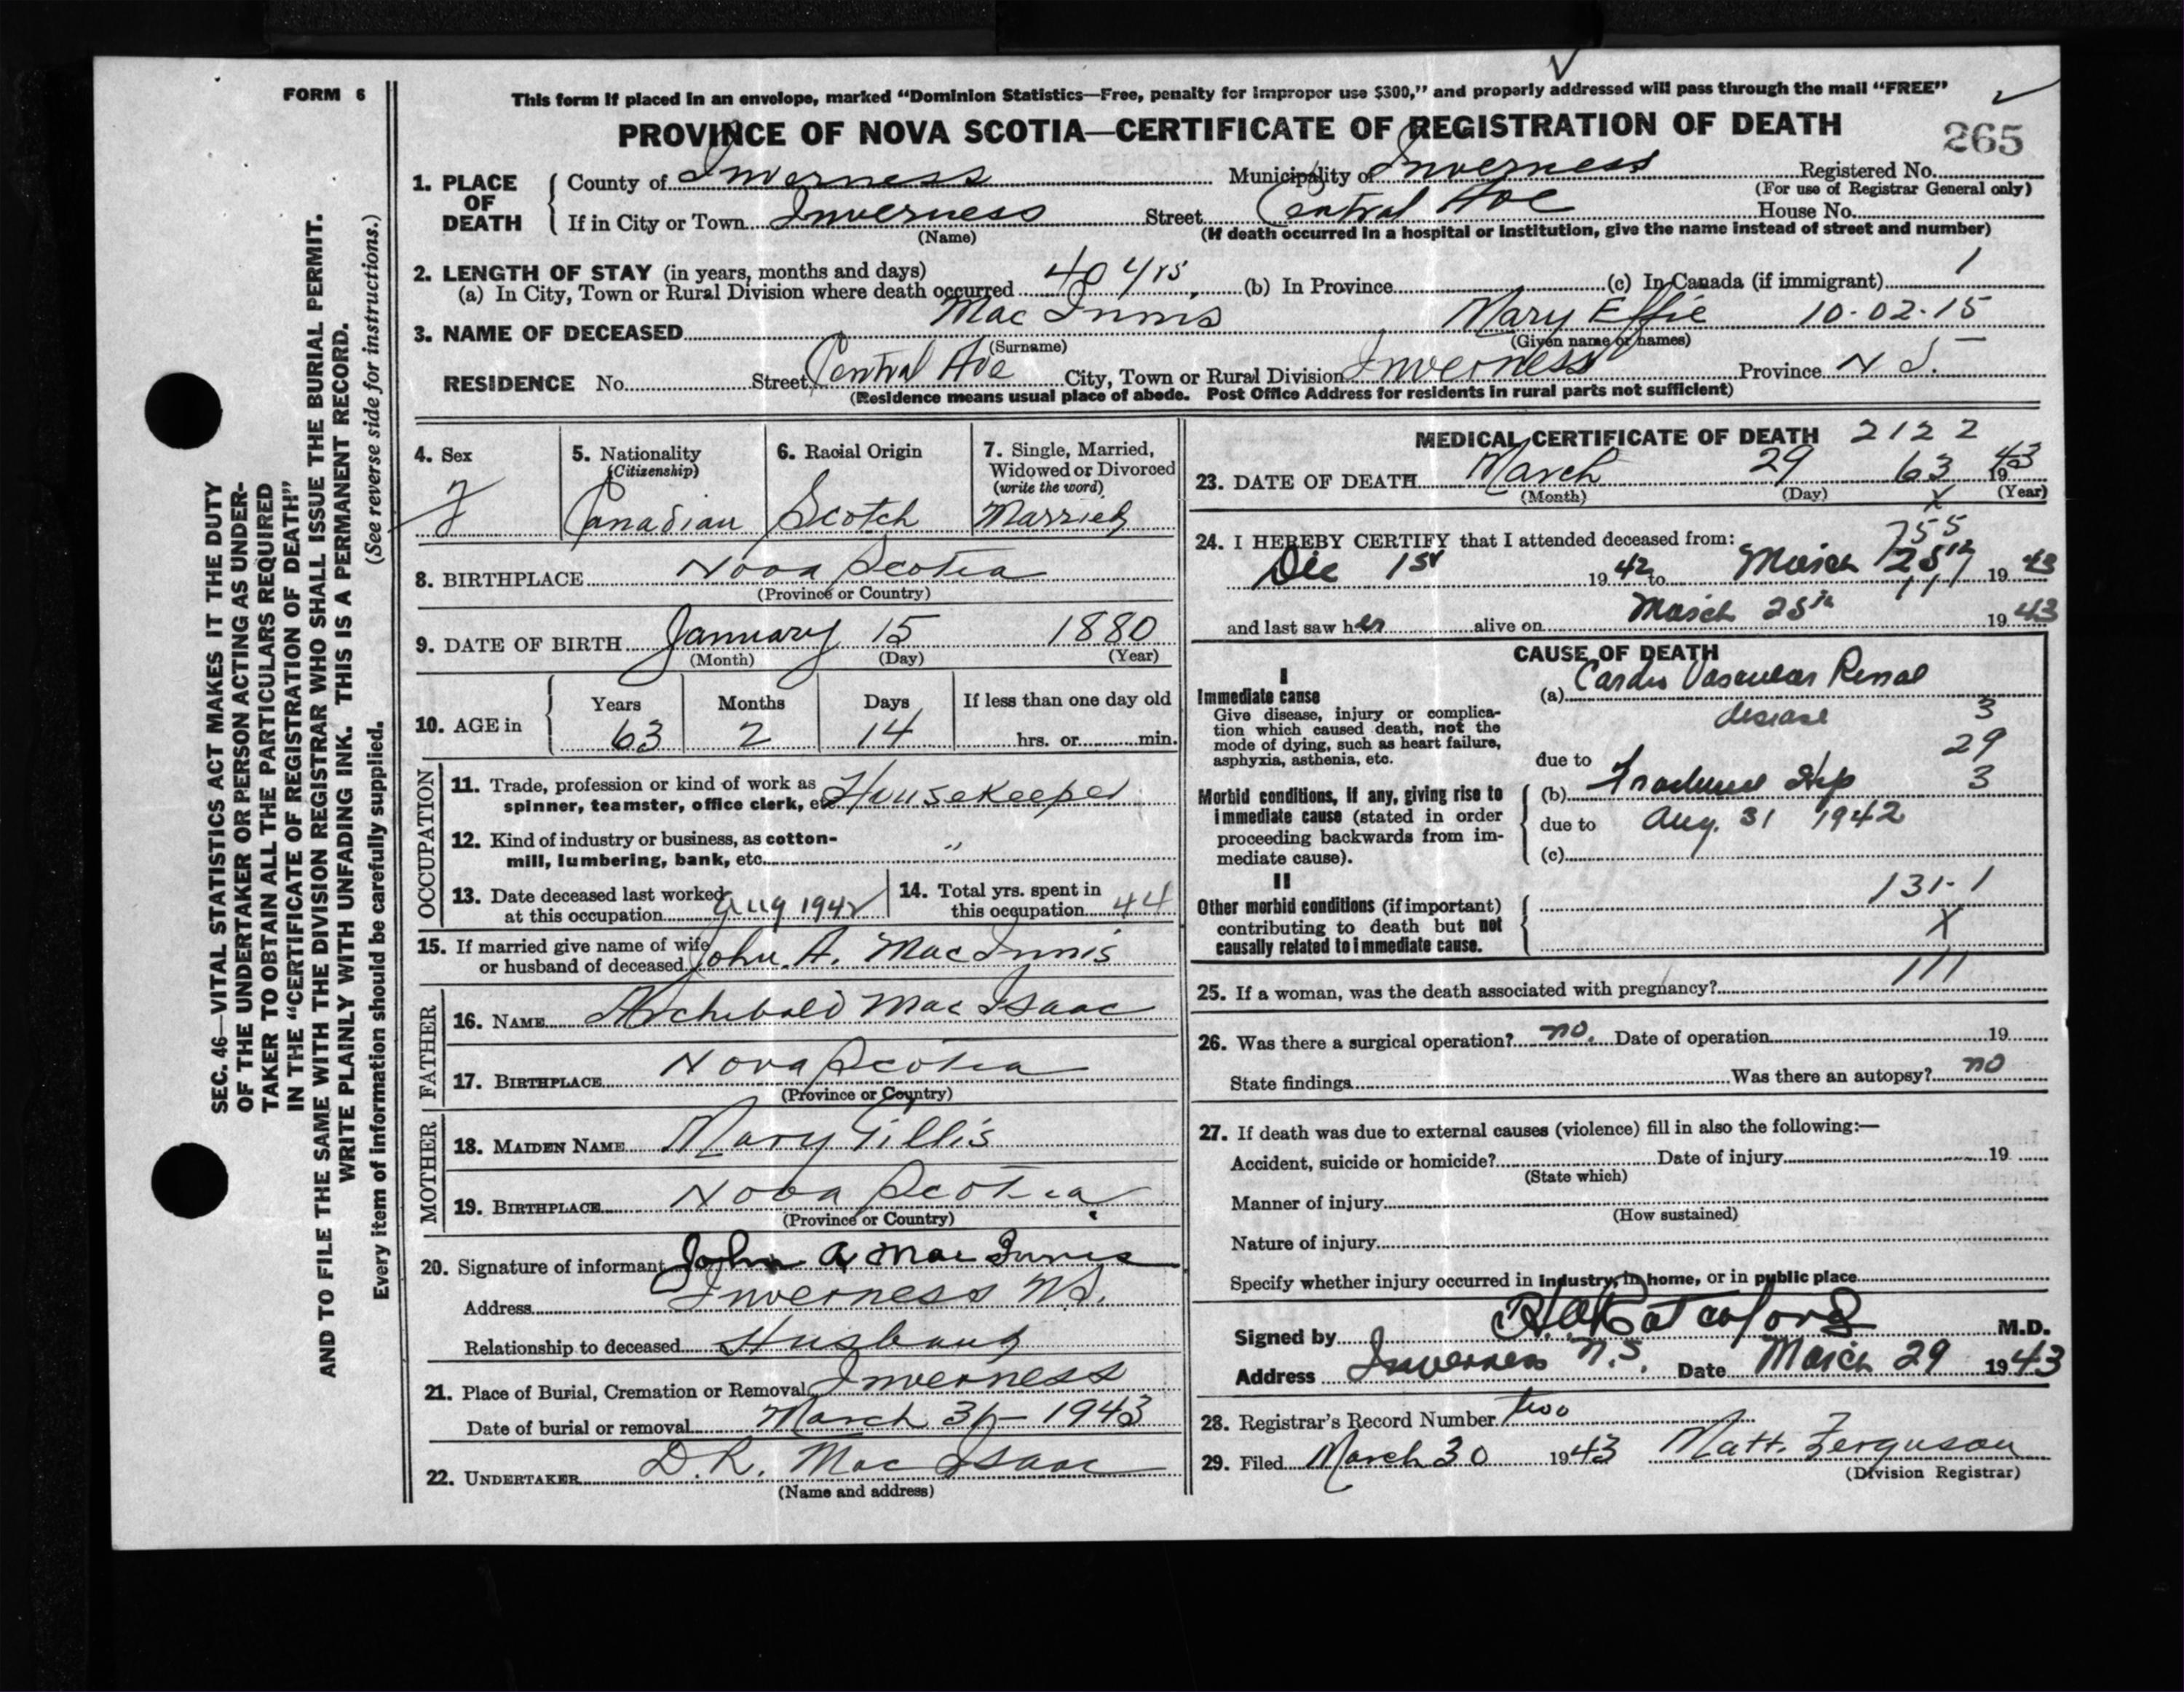 FORM 6
This form if placed in an envelope, marked “Dominion Statistics—Free, penalty for improper use $300,” and properly addressed will pass through the mail “FREE”
PROVINCE OF NOVA SCOTIA—CERTIFICATE OF REGISTRATION OF DEATH
265
1. PLACE OF DEATH County of Inverness Municipality of Inverness Registered No.
(For use of Registrar General only)
If in City or Town Inverness Street Central Ave House No.
(Name) (If death occurred in a hospital or institution, give the name instead of street and number)
2. LENGTH OF STAY (in years, months and days)
(a) In City, Town or Rural Division where death occurred 40 yrs (b) In Province (c) In Canada (if immigrant) 1
3. NAME OF DECEASED Mac Innis Mary Effie 10-02-15
(Surname) (Given name or names)
RESIDENCE No. Street Central Ave City, Town or Rural Division Inverness Province N S.
(Residence means usual place of abode. Post Office Address for residents in rural parts not sufficient)
SEC. 46—VITAL STATISTICS ACT MAKES IT THE DUTY
OF THE UNDERTAKER OR PERSON ACTING AS UNDER-
TAKER TO OBTAIN ALL THE PARTICULARS REQUIRED
IN THE “CERTIFICATE OF REGISTRATION OF DEATH”
AND TO FILE THE SAME WITH THE DIVISION REGISTRAR WHO SHALL ISSUE THE BURIAL PERMIT.
WRITE PLAINLY WITH UNFADING INK. THIS IS A PERMANENT RECORD.
Every item of information should be carefully supplied. (See reverse side for instructions.)
4. Sex
F
5. Nationality
(Citizenship)
Canadian
6. Racial Origin
Scotch
7. Single, Married,
Widowed or Divorced
(write the word)
Married
8. BIRTHPLACE Nova Scotia
(Province or Country)
9. DATE OF BIRTH January 15 1880
(Month) (Day) (Year)
10. AGE in Years Months Days If less than one day old
63 2 14 hrs. or min.
OCCUPATION
11. Trade, profession or kind of work as
spinner, teamster, office clerk, etc Housekeeper
12. Kind of industry or business, as cotton-
mill, lumbering, bank, etc. "
13. Date deceased last worked
at this occupation Aug 1942
14. Total yrs. spent in
this occupation 44
15. If married give name of wife
or husband of deceased John. A. MacInnis
FATHER
16. NAME Archibald Mac Isaac
17. BIRTHPLACE Nova Scotia
(Province or Country)
MOTHER
18. MAIDEN NAME Mary Gillis
19. BIRTHPLACE Nova Scotia
(Province or Country)
20. Signature of informant John A Mac Innis
Address Inverness N.S.
Relationship to deceased Husband
21. Place of Burial, Cremation or Removal Inverness
Date of burial or removal March 31 - 1943
22. UNDERTAKER D.R. Mac Isaac
(Name and address)
MEDICAL CERTIFICATE OF DEATH 2122
23. DATE OF DEATH March 29 63 1943
(Month) (Day) (Year)
X
24. I HEREBY CERTIFY that I attended deceased from: 755
Dec 1st 1942 to March 28th 1943
111
and last saw her alive on March 28th 1943
CAUSE OF DEATH
I
Immediate cause
Give disease, injury or complica-
tion which caused death, not the
mode of dying, such as heart failure,
asphyxia, asthenia, etc.
(a) Cardio Vascular Renal
disease 3
due to 29
Morbid conditions, if any, giving rise to
immediate cause (stated in order
proceeding backwards from im-
mediate cause).
(b) Fractured Hip 3
due to Aug. 31 1942
(c)
II
Other morbid conditions (if important)
contributing to death but not
causally related to immediate cause.
131-1
X
111
25. If a woman, was the death associated with pregnancy?
26. Was there a surgical operation? no. Date of operation 19
State findings Was there an autopsy? no
27. If death was due to external causes (violence) fill in also the following:—
Accident, suicide or homicide? Date of injury 19
(State which)
Manner of injury
(How sustained)
Nature of injury
Specify whether injury occurred in industry, in home, or in public place
Signed by M.D.
Address Inverness N.S. Date March 29 1943
28. Registrar's Record Number two
29. Filed March 30 1943 Matt. Ferguson
(Division Registrar)